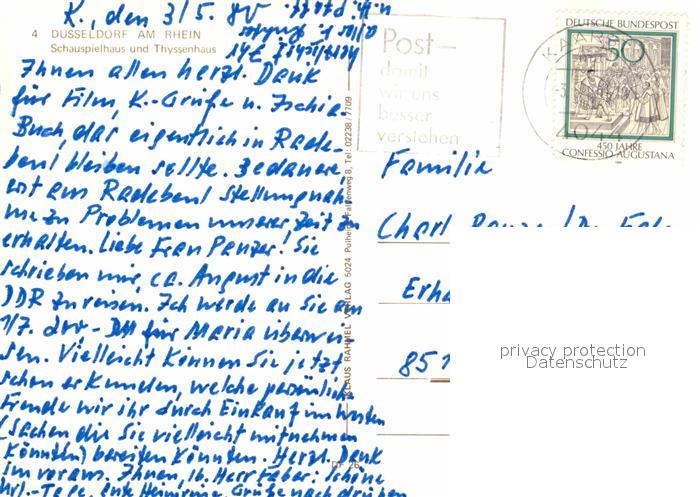 K., den 3/5. 80
4 DÜSSELDORF AM RHEIN
Schauspielhaus und Thyssenhaus
Ihnen allen herzl. Dank
für Film, K.-Grüße u. Ischia
Buch, das eigentlich in Rade-
beul bleiben sollte. Bedauere
erst aus Radebeul Stellungnah
me zu Problemen unserer Zeit zu
erhalten. Liebe Frau Panzer! Sie
schrieben mir, ca. August in die
DDR zu reisen. Ich werde an Sie am
1/7. DM für Maria überwei-
sen. Vielleicht können Sie jetzt
schon erkunden, welche persönliche
Freude wir ihr durch Einkauf im Westen
(Sachen die Sie vielleicht mitnehmen
könnten) bereiten könnten. Herzl. Dank
im voraus. Ihnen, lb. Herr Faber: Schöne
Grüße nach drüben
KLAUS RAHMEL VERLAG 5024 Pulheim, Falkenweg 8, Tel. 02238/7709
DF 26
Post-
damit
wir uns
besser
verstehen
KAARST
4044
DEUTSCHE BUNDESPOST
50
450 JAHRE
CONFESSIO AUGUSTANA
Familie
Charl. Panzer
Erha
851
privacy protection
Datenschutz